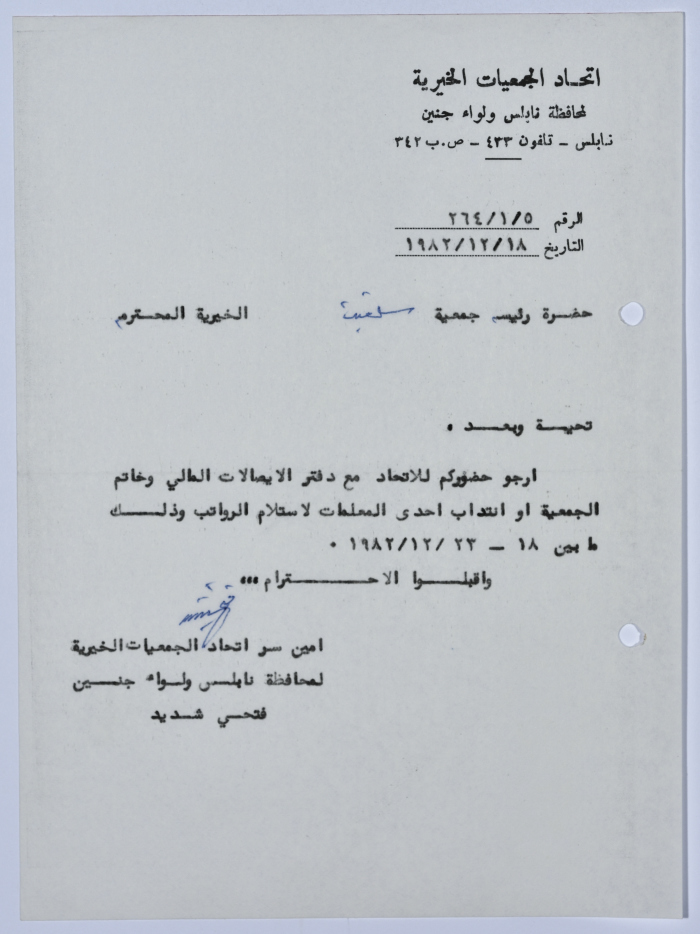 اتحاد الجمعيات الخيرية
لمحافظة نابلس ولواء جنين
نابلس - تلفون ٤٣٣ - ص.ب ٣٤٢
الرقم ٢٦٤/١/٥
التاريخ ١٩٨٢/١٢/١٨
حضرة رئيسه جمعية الخيرية المحترم
تحية وبعد ،
ارجو حضوركم للاتحاد مع دفتر الايصالات المالي وخاتم
الجمعية او انتداب احدى المعلمات لاستلام الرواتب وذلك
ما بين ١٨ - ٢٣ /١٩٨٢/١٢ .
واقبلوا الاحترام ،،،
امين سر اتحاد الجمعيات الخيرية
لمحافظة نابلس ولواء جنين
فتحي شديد